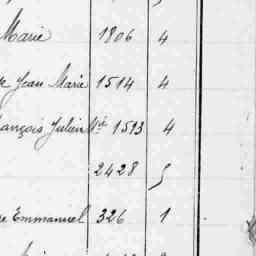 Marie 1806 4
Jean Marie 1514 4
ançois Julien Né 1513 4
2428 5
re Emmanuel 326 1